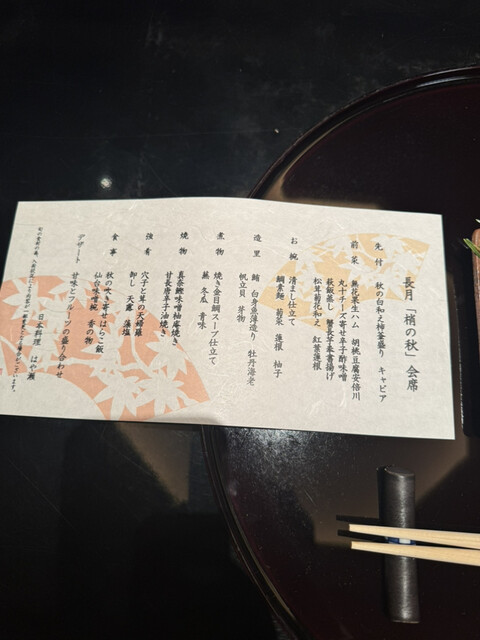 長月「梢の秋」会席
先付 秋の白和え柿釜盛り キャビア
前菜 無花果生ハム 胡桃豆腐安倍川
丸十チーズ寄せ辛子酢味噌
萩飯蒸し 蟹長芋末書揚げ
松茸菊花和え 紅葉蓮根
お椀 清まし仕立て
鯛素麺 菊菜 蓮根 柚子
造里 鮪 白身魚薄造り 牡丹海老
帆立貝 芽物
煮物 焼き金目鯛スープ仕立て
蕪 冬瓜 青味
焼物 真奈鰹味噌柚庵焼き
甘長唐辛子油焼き
強肴 穴子と茸の天婦羅
卸し 天露 藻塩
食事 秋の吹き寄せはらこ飯
仙台味噌椀 香の物
デザート 甘味とフルーツの盛り合わせ
日本料理 はや瀬